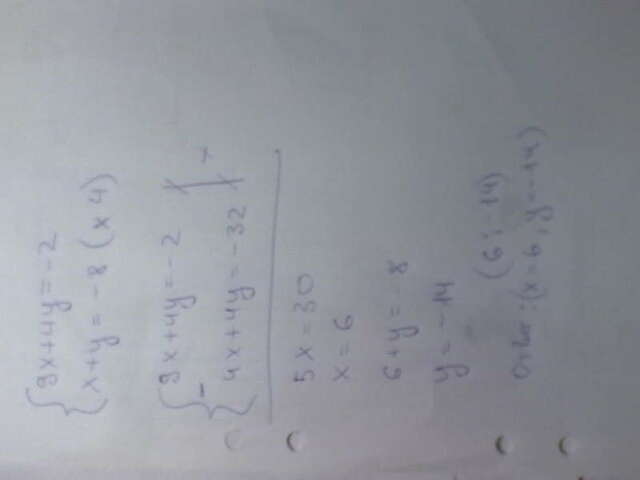 9x+4y=-2
x+y=-8 (x 4)
9x+4y=-2
- 4x+4y=-32
5x=30
x=6
6+y=-8
y=-14
(6;-14)
Ответ:(x=6, y=-14)